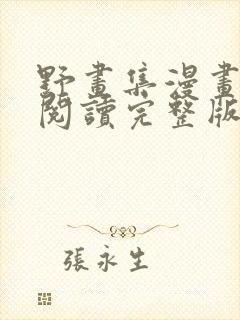 野畫集漫畫
閱讀完整版
張永生